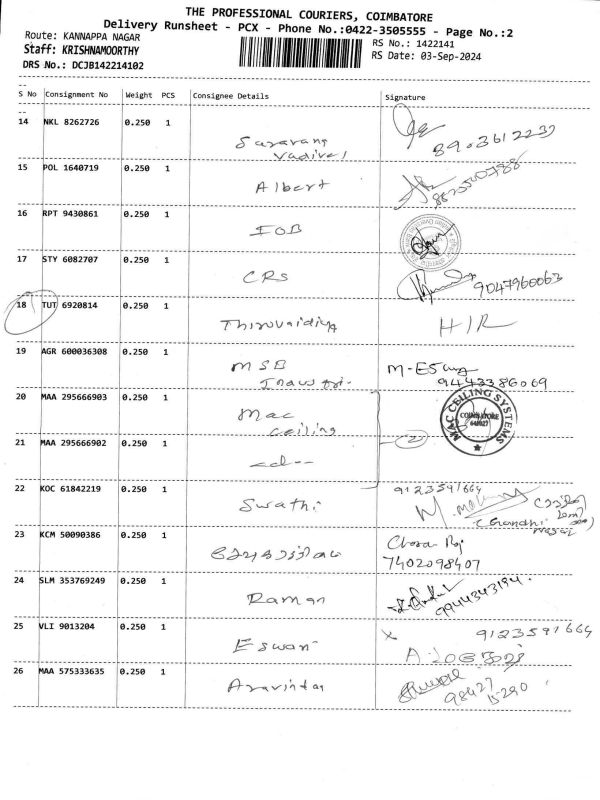 THE PROFESSIONAL COURIERS, COIMBATORE
Delivery Runsheet - PCX - Phone No.:0422-3505555 - Page No.:2
Route: KANNAPPA NAGAR
RS No.: 1422141
Staff: KRISHNAMOORTHY
RS Date: 03-Sep-2024
DRS No.: DCJB142214102
S No Consignment No Weight PCS Consignee Details Signature
14 NKL 8262726 0.250 1
Saravana
Vadivel
15 POL 1640719 0.250 1
Albert
16 RPT 9430861 0.250 1
IOB
17 STY 6082707 0.250 1
CRS 9047960063
18 TUT 6920814 0.250 1
Thiruvaidiya H/R
19 AGR 600036308 0.250 1
MSB M-ESang
9443386069
20 MAA 295666903 0.250 1
Mac
ceiling
MAC CEILING SYSTEMS
COIMBATORE
641027
21 MAA 295666902 0.250 1
(2)
22 KOC 61842219 0.250 1
9123591664
Swathi
23 KCM 50090386 0.250 1
7402098407
24 SLM 353769249 0.250 1
Raman 9944343194
25 VLI 9013204 0.250 1
Eswari x 9123591664
26 MAA 575333635 0.250 1
Aravindan
98427
15290